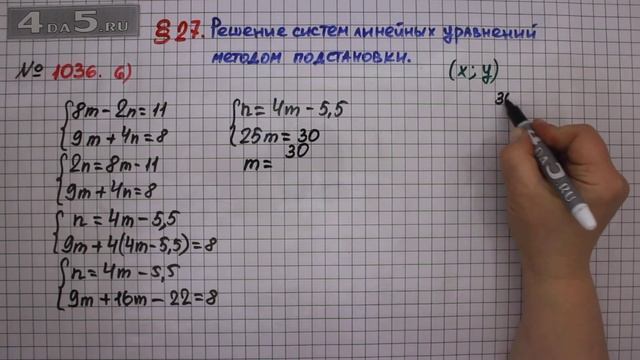 4DA5.RU
§27. Решение систем линейных уравнений
методом подстановки.
№ 1036. б)
(x; y)
{8m - 2n = 11
{9m + 4n = 8
{2n = 8m - 11
{9m + 4n = 8
{n = 4m - 5,5
{9m + 4(4m - 5,5) = 8
{n = 4m - 5,5
{9m + 16m - 22 = 8
{n = 4m - 5,5
{25m = 30
m = 30
30
4DA5.RU